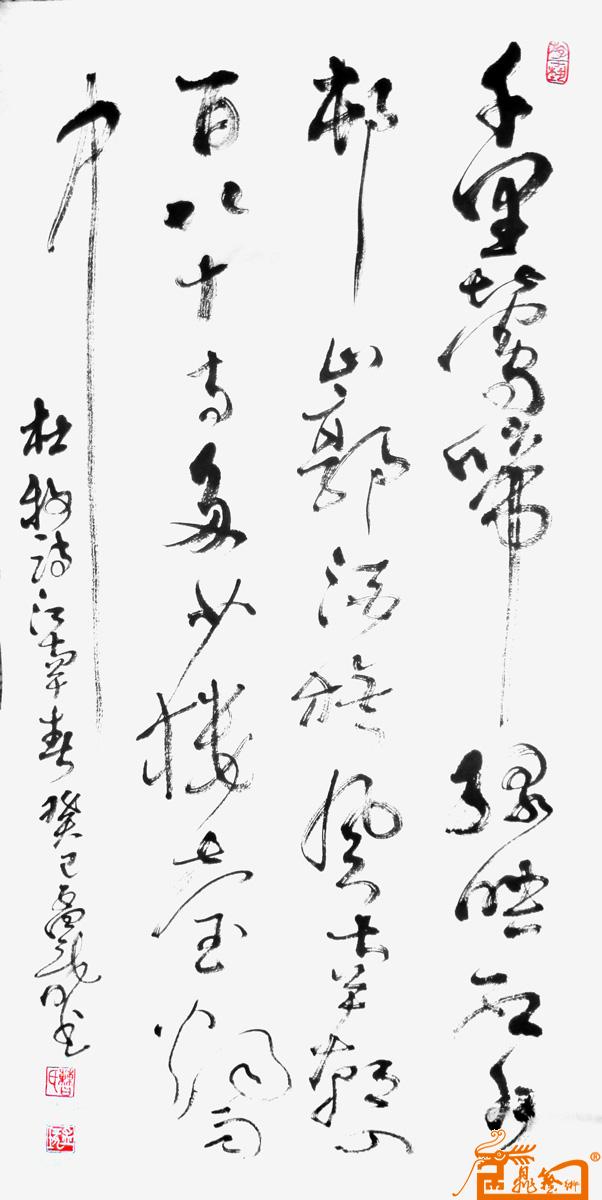 千里鶯啼綠映紅水
村山郭酒旗風南朝四
百八十寺多少樓臺烟雨
中
杜牧詩江南春癸巳